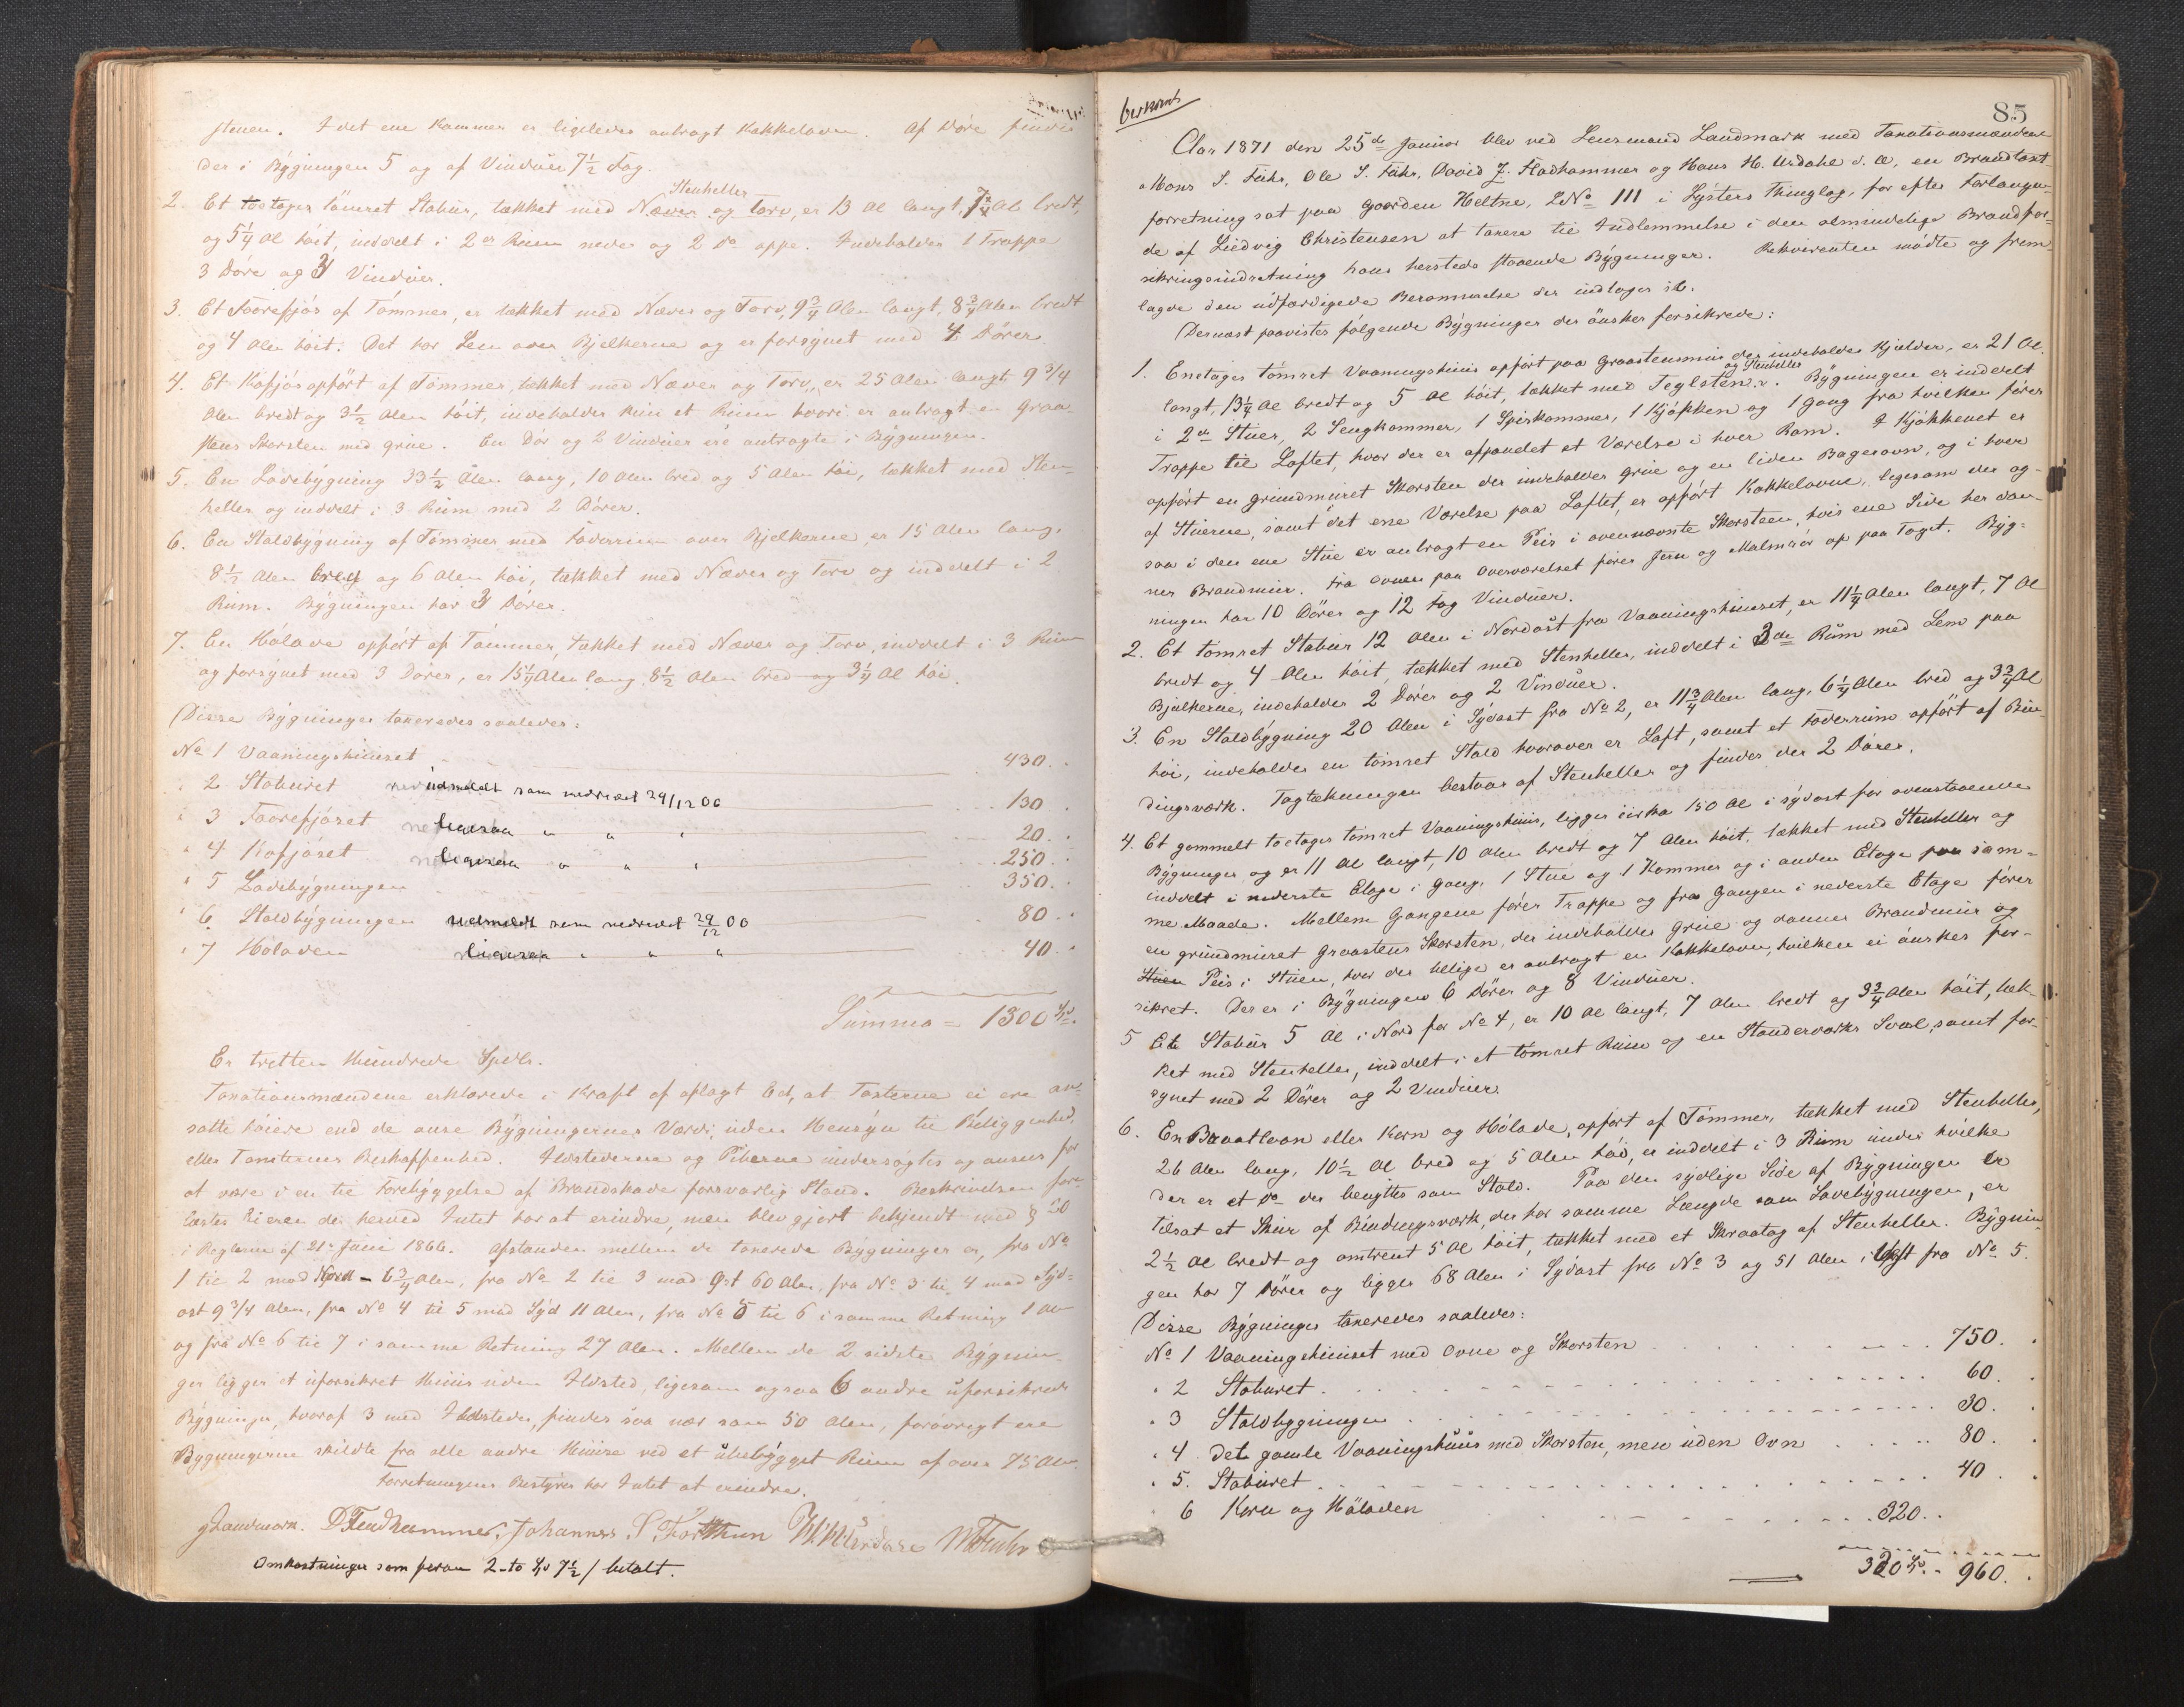 stenen. I det ene Kammer er ligeledes anbragt Kakkelovn. Af Döre findes
der i Bygningen 5 og af Vinduer 7½ Fag.
Stenheller
2. Et toetages tömret Stabur, tækket med Næver og torv, er 13 Al langt, 7¾ Al bredt,
og 5¼ Al höit, inddelt i 2de Rum neder og 2 do oppe. Indeholder 1 Trappe
3 Döre og 3 Vinduer.
3. Et Faarefjös af Tömmer, er tækket med Næver og Torv, 9¾ Alen langt, 8¾ Alen bredt
og 4 Alen höit. Det har Lem over Bjelkerne og er forsynet med 4 Dörer
4. Et Köfjös opfört af Tömmer, tækket med Næver og Torv, er 25 Alen langt, 9¾
Alen bredt og 3½ Alen höit, indeholder kun et Rum hvori er anbragt en Graa-
stens Skorsten med Grue. En Dör og 2 Vinduer ere anbragte i Bygningen.
5. En Ladebygning 33½ Alen lang, 10 Alen bred og 5 Alen höi, tækket med Sten-
heller og inddelt i 3 Rum med 2 Dörer.
6. En Staldbygning af Tömmer med Foderrum over Bjelkerne, er 15 Alen lang,
8½ Alen bred og 6 Alen höi, tækket med Næver og Torv og inddelt i 2
Rum. Bygningen har 3 Dörer.
7. En Hölade opfört af Tömmer, tækket med Næver og Torv, inddelt i 3 Rum
og forsynet med 3 Dörer, er 15¼ Alen lang 8½ Alen bred og 3¼ Al höi.
Disse Bygninger taxeredes saaledes:
No 1 Vaaningshuuset 430.
" 2 Staburet udmeldt som nedrevet 29/12 00 130.
" 3 Faarefjöset ligesaa " " " 20.
" 4 Köfjöset ligesaa " " " 250.
" 5 Ladebygningen 350.
" 6 Staldbygningen udmeldt som nedrevet 29/12 00 80.
" 7 Höladen ligesaa " " " 40.
Summa = 1300 Spd.
Er tretten Hundrede Spdlr.
Taxationsmændene erklærede i Kraft af aflagt Ed, at Taxterne ei ere an-
satte höiere end de anse Bygningernes Værdi, uden Hensyn til Beliggenhed,
eller Tomternes Beskaffenhed. Ildstederne og Piberne undersögtes og ansees for
at være i en til Forebyggelse af Brandskade forsvarlig Stand. Beskrivelsen fore-
læstes Eieren der herved Intet har at erindre, men blev gjort bekjendt med § 20
i Reglerne af 21de Juni 1866. Afstanden mellem de taxerede Bygninger er, fra No
1 til 2 mod Nord - 6¾ Alen, fra No 2 til 3 mod Öst 60 Alen, fra No 3 til 4 mod Syd-
ost 9¾ Alen, fra No 4 til 5 mod Syd 11 Alen, fra No 5 til 6 i samme Retning 1 Alen
og fra No 6 til 7 i samme Retning 27 Alen. Mellem de 2 sidste Bygnin-
ger ligger et uforsikret Huus uden Ildsted, ligesom ogsaa 6 andre uforsikrede
Bygninger, hvoraf 3 med Ildsteder, findes saa nær som 50 Alen, forövrigt ere
Bygningerne skildte fra alle andre Huuse ved et ubebygget Rum af over 75 Alen.
Forretningens Bestyrer har Intet at erindre.
Landmark. D Fladhammer, Johannes S. Forthun
Omkostninger som foran 2-to Spd 7½ / betalt.
85
Aar 1871 den 25de Januar blev ved Lensmand Landmark med Taxationsmændene
Mons S. Fuhr, Ole S. Fuhr, David J. Fladhammer og Hans H. Urdahl d. æ, en Brandtaxt
forretning sat paa Gaarden Heltne, LNo 111 i Lysters Thinglag, for efter Forlangen-
de af Ludvig Christensen at taxere til Indlemmelse i den almindelige Brandfor-
sikringsindretning hans hersteds staaende Bygninger. Rekvirenten mödte og frem-
lagde den udfærdigede Berammelse der indtages sl.
Dernæst paavistes fölgende Bygninger der önskes forsikrede:
1. Enetages tömret Vaaningshuus opfört paa Graastensmuur der indeholder Kjelder, er 21 Al.
og Stenheller
langt, 13¼ Al bredt og 5 Al höit, tækket med Teglsten. Bygningen er inddelt
i 2de Stuer, 2 Sengkammer, 1 Spiskammer, 1 Kjökken og 1 Gang fra hvilken förer
Trappe til Loftet, hvor der er afpandet et Værelse i hver Ram. I Kjökkenet er
opfört en grundmuret Skorsten der indeholder Grue og en liden Bagerovn, og i hver
af Stuerne, samt det ene Værelse paa Loftet, er opfört Kakkelovne, ligesom der og-
saa i den ene Stue er anbragt en Peis i ovennævnte Skorsteen, hvis ene Side her dan-
ner Brandmuur. Fra ovnen paa Overværelset förer Jern og Malmrör op paa Taget. Byg-
ningen har 10 Dörer og 12 Fag Vinduer.
2. Et tömret Stabur 12 Alen i Nordöst fra Vaaningshuuset, er 11¼ Alen langt, 7 Al
bredt og 4 Alen höit, tækket med Stenheller, inddelt i 3de Rum med Lem paa
Bjelkerne, indeholder 2 Dörer og 2 Vinduer.
3. En Staldbygning 20 Alen i Sydost fra No 2, er 11¾ Alen lang, 6¼ Alen bred og 3¾ Al
höi, indeholder en tömret Stald hvorover er Loft, samt et Foderrum opfört af Bin-
dingsværk. Tagtækningen bestaar af Stenheller og findes der 2 Dörer.
4. Et gammelt toetages tömret Vaaningshuus, ligger cirka 150 Al i sydost for ovenstaaende
Bygninger og er 11 Al langt, 10 Alen bredt og 7 Alen höit, tækket med Stenheller og
inddelt i nederste Etage i Gang, 1 Stue og 1 Kammer og i anden Etage paa sam-
me Maade. Mellem Gangene förer Trappe og fra Gangen i nederste Etage förer
en grundmuret Graastens Skorsten, der indeholder Grue og danner Brandmuur og
Stuen Peis i Stuen, hvor der tillige er anbragt en Kakkelovn, hvilken ei önskes for-
sikret. Der er i Bygningen 6 Dörer og 8 Vinduer.
5 Et Stabur 5 Al i Nord for No 4, er 10 Al langt, 7 Alen bredt og 3¾ Alen höit, tæk-
ket med Stenheller, inddelt i et tömret Rum og en Standerværks Sval, samt for-
synet med 2 Dörer og 2 Vinduer.
6. En Braatloon eller Korn og Hölade, opfört af Tömmer, tækket med Stenheller,
26 Alen lang, 10½ Al bred og 5 Alen höi, er inddelt i 3 Rum under hvilke
der er et do der benyttes som Stald. Paa den sydlige Side af Bygningen er
tilsat et Skur af Bindingsværk, der har samme Længde som Ladebygningen, er
2½ Al bredt og omtrent 5 Al höit, tækket med et Skraatag af Stenheller. Bygnin-
gen har 7 Dörer og ligger 68 Alen i Sydost fra No 3 og 51 Alen i Vest fra No 5.
Disse Bygninger taxeredes saaledes:
No 1 Vaaningshuuset med Ovne og Skorsten 750.
" 2 Staburet 60.
" 3 Staldbygningen 30.
" 4 det gamle Vaaningshuus med Skorsten, men uden Ovn 80.
" 5. Staburet 40.
6 Korn og Höladen 320.
320 Spd. - 960.